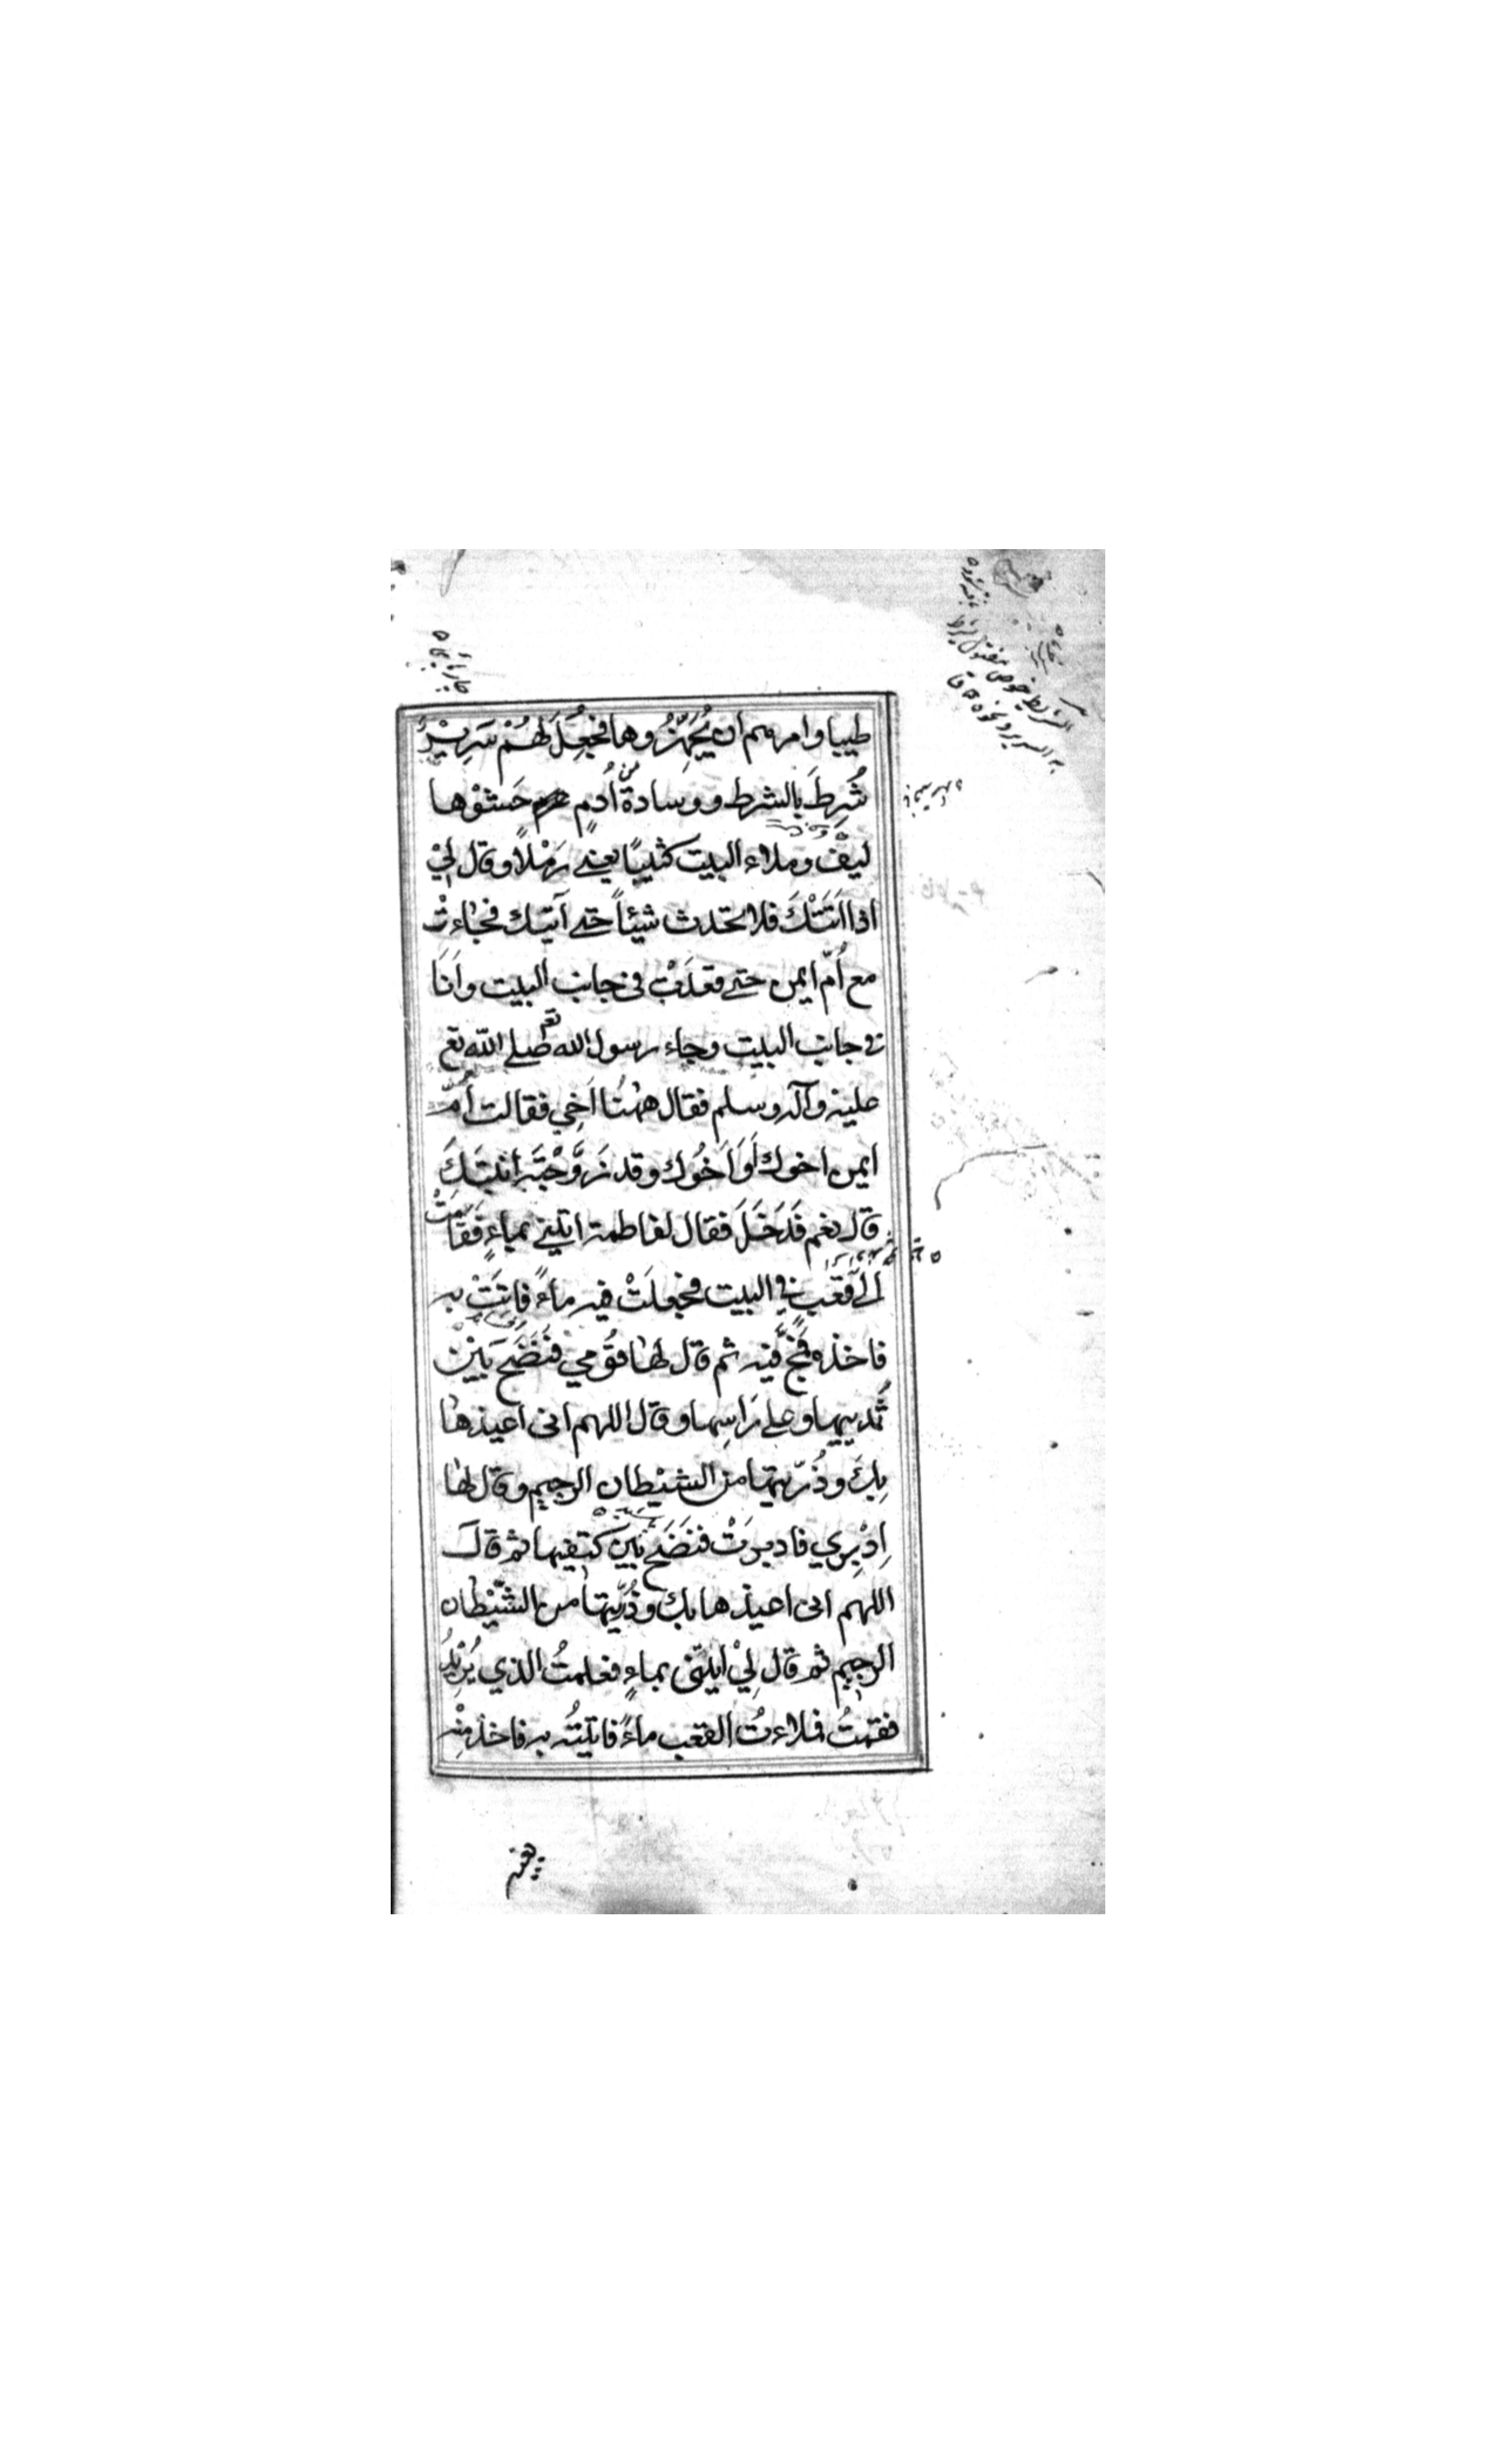 طيبا وامرهم ان يُجَهِّزُوها فجُعِلَ لهُمْ سَرِيْرٌ
شُرِطَ بالشرط ووسادةٌ من اُدمٍ حَشْوُها
ليفٌ وملاء البيت كثيبًا يعني رَمْلًا وقال لِيْ
اذا اَتَتْكَ فلا تحدث شيئاً حتى آتيك فجاءتْ
مع اُمّ ايمن حتى قعدَتْ في جانب البيت واَنَا
في جانب البيت وجاء رسول الله صلى الله تع
عليه وآله وسلم فقال ههُنا اَخِي فقالت اُمّ
ايمن اخوك اَوَ اَخُوك وقد زَوَّجْتَه ابْنَتَكَ
قال نعم فَدَخَلَ فقال لفاطمة ايتيني بماءٍ فَقَامَتْ
اِلى قَعْبٍ في البيت فجعلَتْ فيه ماءً فاَتَتْ به
فاخذه فَمَجَّ فيه ثم قال لها قُوْمي فنَضَحَ بَيْن
ثَديَيها وعلى رَاسِها وقال اللهم انى اعيذها
بِكَ وذُرّيتها من الشيْطان الرجيم وقال لها
اِدْبِري فادبرَتْ فنَضَحَ بَيْن كتفيها ثم قال
اللهم انى اعيذها بك وذُرِّيتها من الشَّيْطان
الرجيم ثم قال لِيْ ايتنى بماءٍ فعلمتُ الذي يُرِيْدُ
فقمتُ فملاءتُ القعب ماءً فاتيتُه به فاخذ مِنْه